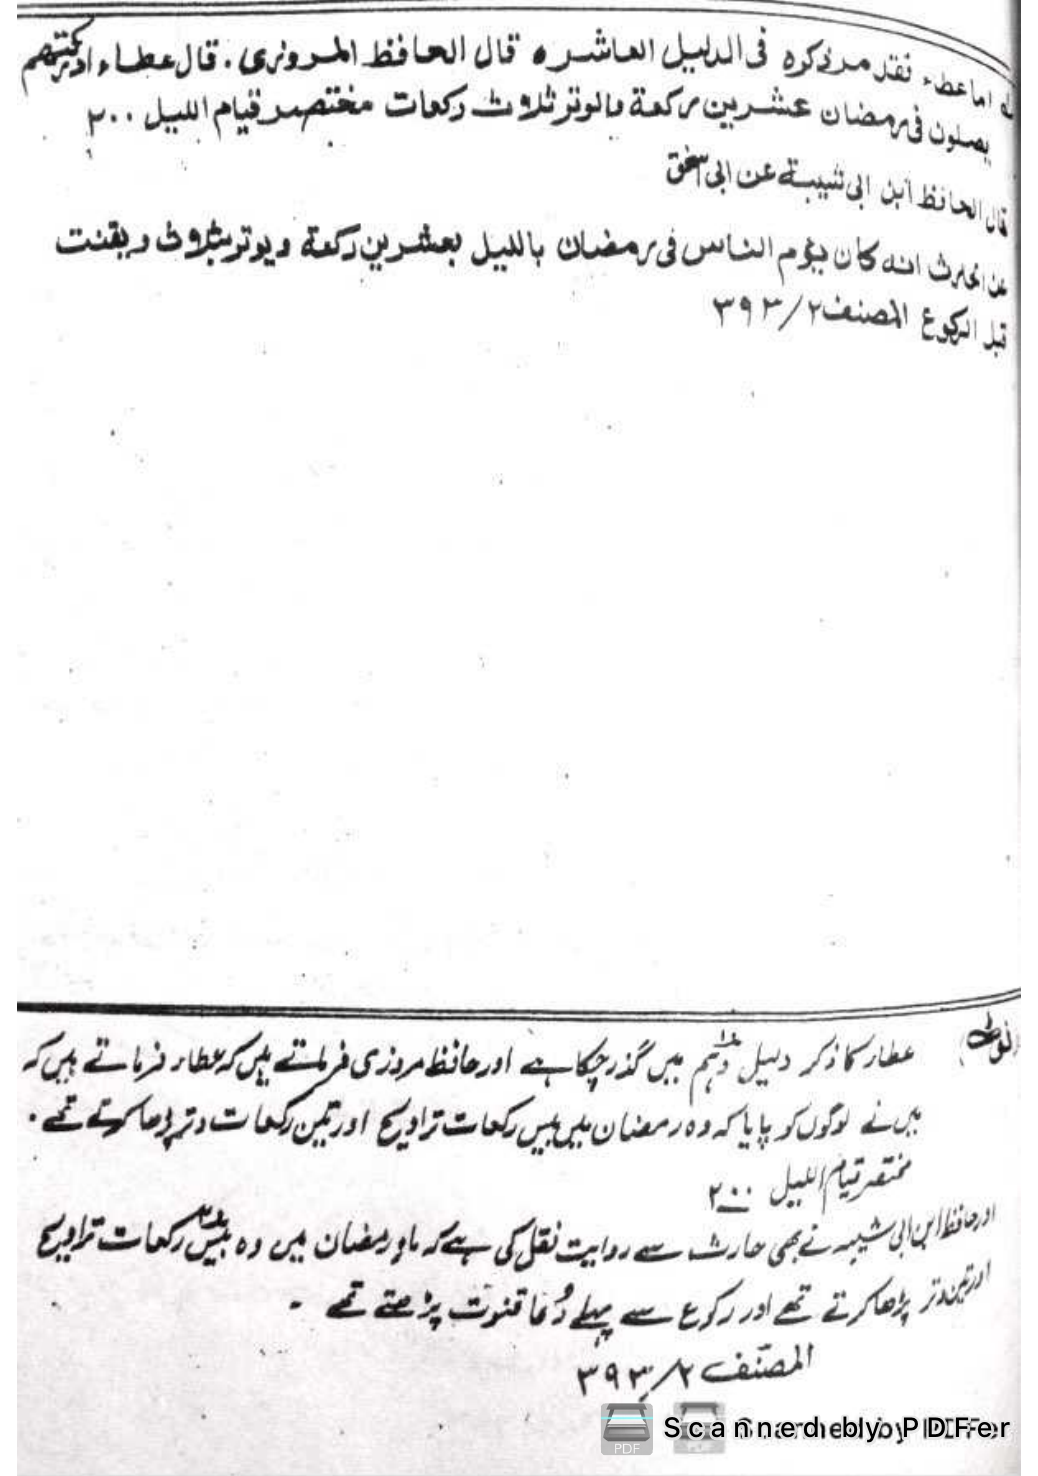 له اما عطاء فقد مر ذكره فى الدليل العاشر ه قال الحافظ المروزى . قال عطاء ادركتهم
يصلون فى رمضان عشرين ركعة والوتر ثلاث ركعات مختصر قيام الليل ٢٠٠
قال الحافظ ابن ابى شيبة عن ابى اسحٰق
عن الحارث انه كان يؤم الناس فى رمضان بالليل بعشرين ركعة ويوتر بثلاث ويقنت
قبل الركوع المصنف ٢/٣٩٣
(نوٹ) عطار کا ذکر دلیل دہم میں گذر چکا ہے اور حافظ مروزی فرماتے ہیں کہ عطاء فرماتے ہیں کہ
میں نے لوگوں کو پایا کہ وہ رمضان میں بیس رکعات تراویح اور تین رکعات وتر پڑھا کرتے تھے .
مختصر قیام اللیل ٢٠٠
اور حافظ ابن ابی شیبہ نے بھی حارث سے روایت نقل کی ہے کہ ماہ رمضان میں وہ بیس رکعات تراویح
اور تین وتر پڑھا کرتے تھے اور رکوع سے پہلے دُعا قنوت پڑھتے تھے -
المصنّف ٢/٣٩٣
PDF Scanned by PDFer